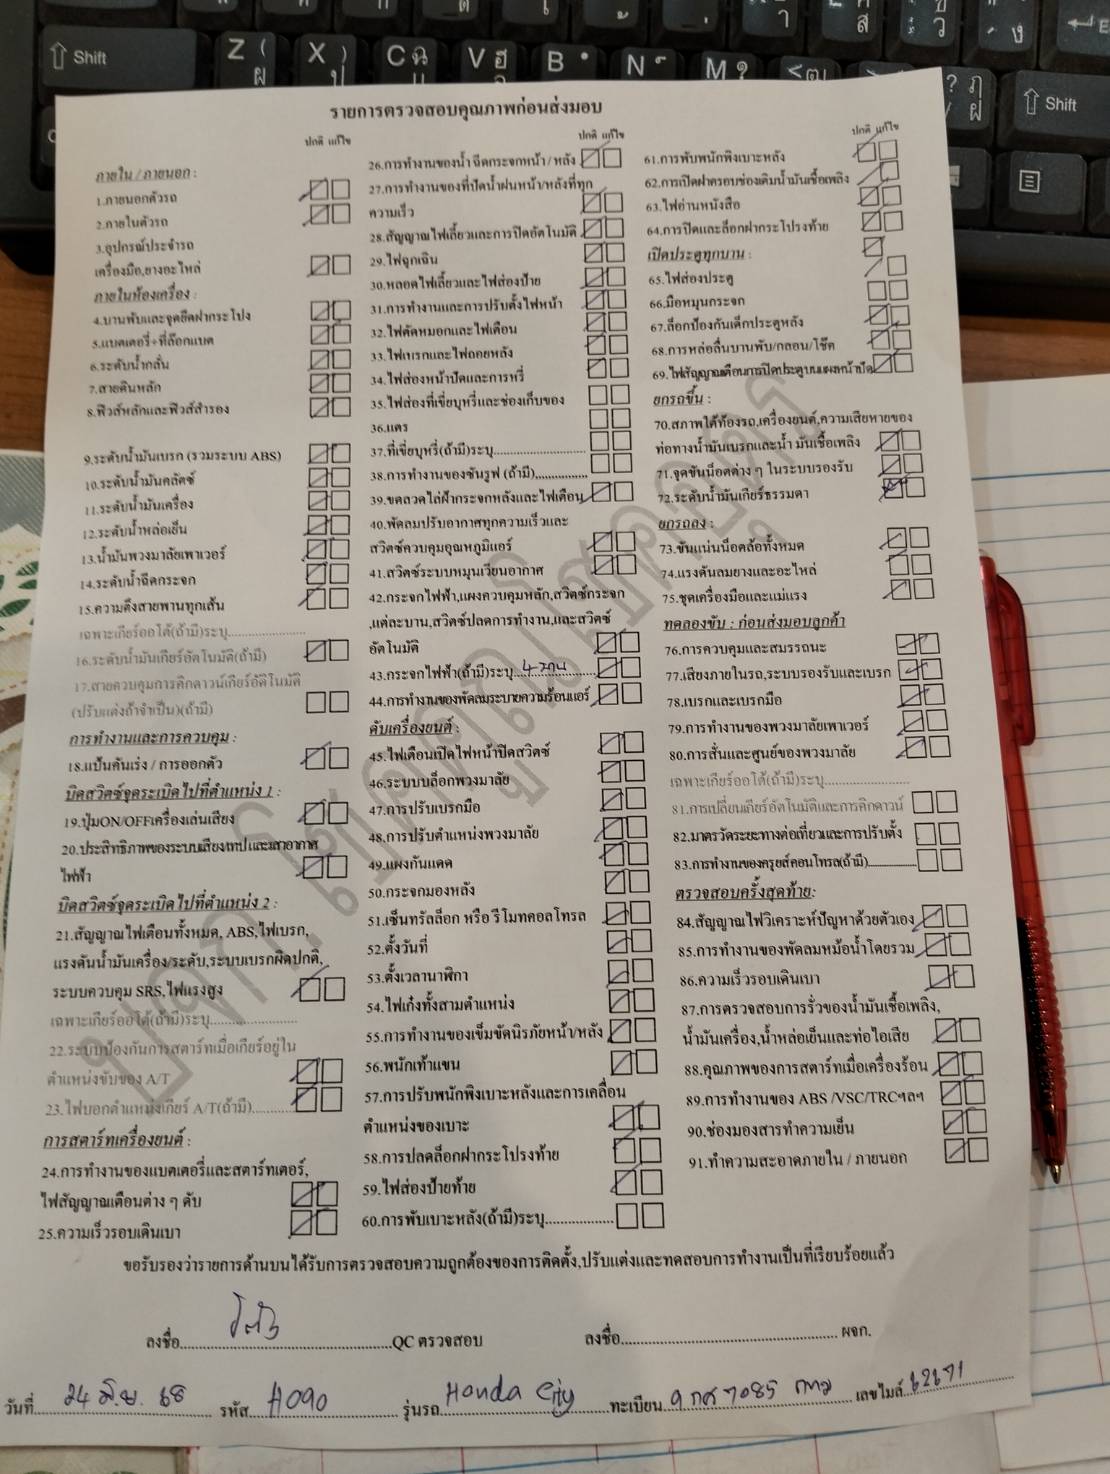 รายการตรวจสอบคุณภาพก่อนส่งมอบ
ปกติ แก้ไข
ภายใน / ภายนอก :
1.ภายนอกตัวรถ
2.ภายในตัวรถ
3.อุปกรณ์ประจำรถ
เครื่องมือ,ยางอะไหล่
ภายในห้องเครื่อง :
4.บานพับและจุดยึดฝากระโปง
5.แบตเตอรี่+ที่ล๊อกแบต
6.ระดับน้ำกลั่น
7.สายดินหลัก
8.ฟิวส์หลักและฟิวส์สำรอง
9.ระดับน้ำมันเบรก (รวมระบบ ABS)
10.ระดับน้ำมันคลัตช์
11.ระดับน้ำมันเครื่อง
12.ระดับน้ำหล่อเย็น
13.น้ำมันพวงมาลัยเพาเวอร์
14.ระดับน้ำฉีดกระจก
15.ความตึงสายพานทุกเส้น
เฉพาะเกียร์ออโต้(ถ้ามี)ระบุ
16.ระดับน้ำมันเกียร์อัตโนมัติ(ถ้ามี)
17.สายควบคุมการคิกดาวน์เกียร์อัติโนมัติ
(ปรับแต่งถ้าจำเป็น)(ถ้ามี)
การทำงานและการควบคุม :
18.แป้นคันเร่ง / การออกตัว
บิดสวิตช์จุดระเบิดไปที่ตำแหน่ง 1 :
19.ปุ่มON/OFFเครื่องเล่นเสียง
20.ประสิทธิภาพของระบบเสียงเทปและเสาอากาศ
ไฟฟ้า
บิดสวิตช์จุดระเบิดไปที่ตำแหน่ง 2 :
21.สัญญาณไฟเตือนทั้งหมด, ABS,ไฟเบรก,
แรงดันน้ำมันเครื่อง/ระดับ,ระบบเบรกผิดปกติ,
ระบบควบคุม SRS,ไฟแรงสูง
เฉพาะเกียร์ออโต้(ถ้ามี)ระบุ
22.ระบบป้องกันการสตาร์ทเมื่อเกียร์อยู่ใน
ตำแหน่งขับของ A/T
23.ไฟบอกตำแหน่งเกียร์ A/T(ถ้ามี)
การสตาร์ทเครื่องยนต์ :
24.การทำงานของแบตเตอรี่และสตาร์ทเตอร์,
ไฟสัญญาณเตือนต่าง ๆ ดับ
25.ความเร็วรอบเดินเบา
ปกติ แก้ไข
26.การทำงานของน้ำ ฉีดกระจกหน้า / หลัง
27.การทำงานของที่ปัดน้ำฝนหน้า/หลังที่ทุก
ความเร็ว
28.สัญญาณไฟเลี้ยวและการปิดอัตโนมัติ
29.ไฟฉุกเฉิน
30.หลอดไฟเลี้ยวและไฟส่องป้าย
31.การทำงานและการปรับตั้งไฟหน้า
32.ไฟตัดหมอกและไฟเตือน
33.ไฟเบรกและไฟถอยหลัง
34.ไฟส่องหน้าปัดและการหรี่
35.ไฟส่องที่เขี่ยบุหรี่และช่องเก็บของ
36.แตร
37.ที่เขี่ยบุหรี่(ถ้ามี)ระบุ
38.การทำงานของซันรูฟ (ถ้ามี)
39.ขดลวดไล่ฝ้ากระจกหลังและไฟเตือน
40.พัดลมปรับอากาศทุกความเร็วและ
สวิตช์ควบคุมอุณหภูมิแอร์
41.สวิตช์ระบบหมุนเวียนอากาศ
42.กระจกไฟฟ้า,แผงควบคุมหลัก,สวิตช์กระจก
,แต่ละบาน,สวิตช์ปลดการทำงาน,และสวิตช์
อัตโนมัติ
43.กระจกไฟฟ้า(ถ้ามี)ระบุ
44.การทำงานของพัดลมระบายความร้อนแอร์
ดับเครื่องยนต์ :
45.ไฟเตือนเปิดไฟหน้าปิดสวิตซ์
46.ระบบบล็อกพวงมาลัย
47.การปรับเบรกมือ
48.การปรับตำแหน่งพวงมาลัย
49.แผงกันแดด
50.กระจกมองหลัง
51.เซ็นทรัลล็อก หรือ รีโมทคอลโทรล
52.ตั้งวันที่
53.ตั้งเวลานาฬิกา
54.ไฟเก๋งทั้งสามตำแหน่ง
55.การทำงานของเข็มขัดนิรภัยหน้า/หลัง
56.พนักเท้าแขน
57.การปรับพนักพิงเบาะหลังและการเคลื่อน
ตำแหน่งของเบาะ
58.การปลดล็อกฝากระโปรงท้าย
59.ไฟส่องป้ายท้าย
60.การพับเบาะหลัง(ถ้ามี)ระบุ
ปกติ แก้ไข
61.การพับพนักพิงเบาะหลัง
62.การเปิดฝาครอบช่องเติมน้ำมันเชื้อเพลิง
63.ไฟอ่านหนังสือ
64.การปิดและล็อกฝากระโปรงท้าย
เปิดประตูทุกบาน :
65.ไฟส่องประตู
66.มือหมุนกระจก
67.ล็อกป้องกันเด็กประตูหลัง
68.การหล่อลื่นบานพับ/กลอน/โช๊ค
69.ไฟสัญญาณเตือนการปิดประตูบนแผงหน้าปัด
ยกรถขึ้น :
70.สภาพใต้ท้องรถ,เครื่องยนต์,ความเสียหายของ
ท่อทางน้ำมันเบรกและน้ำ มันเชื้อเพลิง
71.จุดขันน็อตต่าง ๆ ในระบบรองรับ
72.ระดับน้ำมันเกียร์ธรรมดา
ยกรถลง :
73.ขันแน่นน็อตล้อทั้งหมด
74.แรงดันลมยางและอะไหล่
75.ชุดเครื่องมือและแม่แรง
ทดลองขับ : ก่อนส่งมอบลูกค้า
76.การควบคุมและสมรรถนะ
77.เสียงภายในรถ,ระบบรองรับและเบรก
78.เบรกและเบรกมือ
79.การทำงานของพวงมาลัยเพาเวอร์
80.การสั่นและศูนย์ของพวงมาลัย
เฉพาะเกียร์ออโต้(ถ้ามี)ระบุ
81.การเปลี่ยนเกียร์อัตโนมัติและการคิกดาวน์
82.มาตรวัดระยะทางต่อเที่ยวและการปรับตั้ง
83.การทำงานของครูยส์คอนโทรล(ถ้ามี)
ตรวจสอบครั้งสุดท้าย:
84.สัญญาณไฟวิเคราะห์ปัญหาด้วยตัวเอง
85.การทำงานของพัดลมหม้อน้ำโดยรวม
86.ความเร็วรอบเดินเบา
87.การตรวจสอบการรั่วของน้ำมันเชื้อเพลิง,
น้ำมันเครื่อง,น้ำหล่อเย็นและท่อไอเสีย
88.คุณภาพของการสตาร์ทเมื่อเครื่องร้อน
89.การทำงานของ ABS /VSC/TRCฯลฯ
90.ช่องมองสารทำความเย็น
91.ทำความสะอาดภายใน / ภายนอก
ขอรับรองว่ารายการด้านบนได้รับการตรวจสอบความถูกต้องของการติดตั้ง,ปรับแต่งและทดสอบการทำงานเป็นที่เรียบร้อยแล้ว
ลงชื่อ QC ตรวจสอบ ลงชื่อ ผจก.
วันที่ 24 มิ.ย. 68 รหัส H090 รุ่นรถ Honda City ทะเบียน 9 กศ 7085 กทม เลขไมล์ 62671